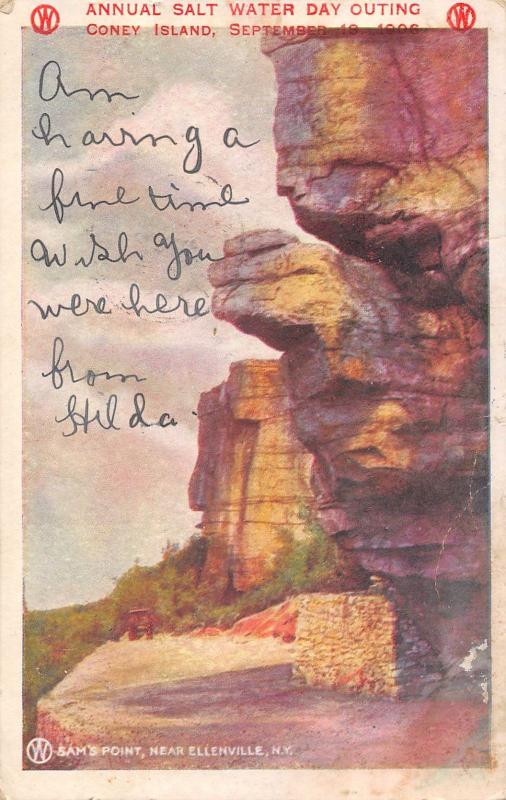 W ANNUAL SALT WATER DAY OUTING W
CONEY ISLAND, SEPTEMBER 18, 1906
Am
having a
fine time
Wish You
were here
from
Hilda
W SAM'S POINT, NEAR ELLENVILLE, N.Y.